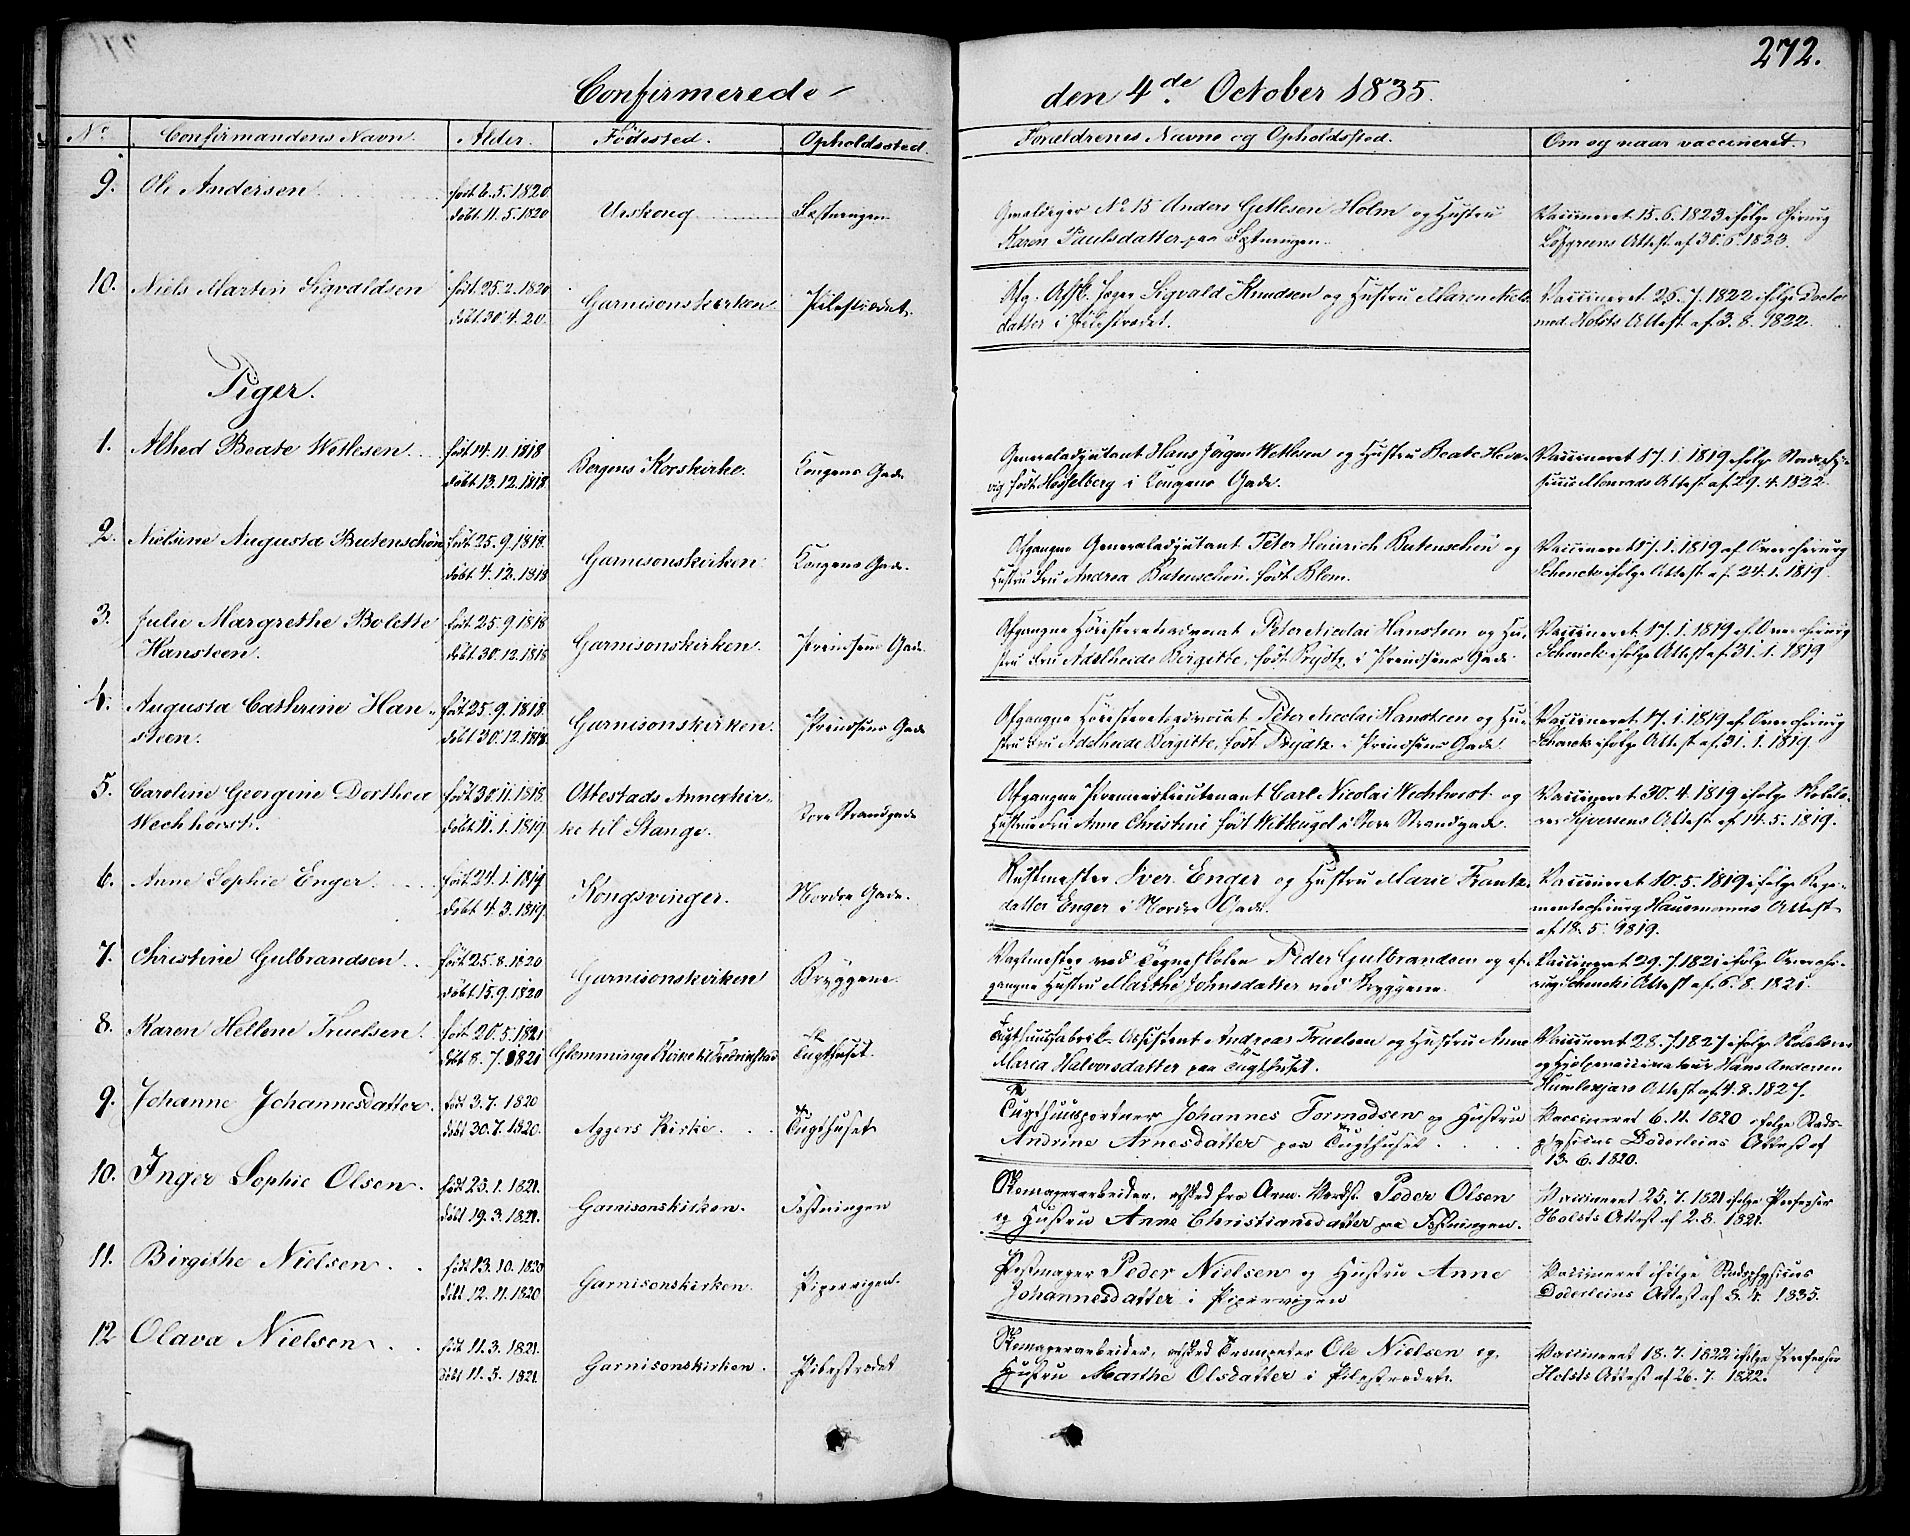 272.
Confirmerede den 4de October 1835.
No. Confirmandens Navn. Alder. Fødested. Opholdssted. Forældrenes Navne og Opholdssted. Om og naar vaccineret.
9. Ole Andersen født 6.5.1820 Urskoug Fæstningen
døbt 11.5.1820
No 15 Anders Hustru
Karen Paulsdatter paa Fæstningen.
Vaccineret 15.6.1823 ifølge Chirurg
Attest af 30.6.1823.
10. Niels Martin Sigvaldsen født 25.2.1820 Garnisonskirken Pilestrædet.
døbt 30.4.20.
Afg. Afsk. Jæger Sigvald Knudsen og Hustru Maren Niels
datter i Pilestrædet.
Vaccineret 26.7.1822 ifølge Doctor
med. Holsts Attest af 3.8.1822.
Piger.
1. Alhed Beate Wetlesen født 14.11.1818 Bergens Korskirke. Kongens Gade.
døbt 13.12.1818
Generaladjutant Hans Jørgen Wetlesen og Hustru Beate Hede-
vig født Hesselberg i Kongens Gade.
Vaccineret 17.1.1819 ifølge Stadsphy-
sicus Monrads Attest af 29.4.1822.
2. Nielsine Augusta Butenschøn født 25.9.1818. Garnisonskirken Kongens Gade.
døbt 4.12.1818
Afgangne Generaladjutant Peter Heinrich Butenschøn og
Hustru Fru Andrea Butenschøn, født Blom.
Vaccineret 17.1.1819 af Overchirurg
Schenck ifølge Attest af 24.1.1819.
3. Julie Margrethe Bolette født 25.9.1818 Garnisonskirken. Prindsens Gade.
Hansteen. døbt 30.12.1818
Afgangne Høiesteretsadvocat Peter Nicolai Hansteen og Hu-
stru Fru Adelheide Birgitte, født Prydtz i Prindsens Gade.
Vaccineret 17.1.1819 af Overchirurg
Schenck ifølge Attest af 31.1.1819
4. Augusta Cathrine Han- født 25.9.1818. Garnisonskirken. Prindsens Gade
steen. døbt 30.12.1818.
Afgangne Høiesteretsadvocat Peter Nicolai Hansteen og Hu-
stru Fru Adelheide Birgitte, født Prydtz i Prindsens Gade.
Vaccineret 17.1.1819 af Overchirurg
Schenck ifølge Attest af 31.1.1819.
5. Caroline Georgine Dorthea født 30.11.1818. Ottestads Annexkir- Store Strandgade
Wechhorst. døbt 11.1.1819. ke til Stange.
Afgangne Premierlieutenant Carl Nicolai Wechhorst og
Hustru Fru Anne Christine født Witkugel i Store Strandgade.
Vaccineret 30.4.1819 ifølge Skolelæ-
rer Syversens Attest af 14.5.1819.
6. Anne Sophie Enger. født 24.1.1819. Kongsvinger. Nordre Gade.
døbt 4.3.1819.
Rustmester Iver Enger og Hustru Marie Frantz-
datter Enger i Nordre Gade.
Vaccineret 10.5.1819 ifølge Regi-
mentschirurg Hausmanns Attest
af 18.5.1819.
7. Christine Gulbrandsen født 25.8.1820 Garnisonskirken Bryggene.
døbt 15.9.1820
Vagtmester ved Tegneskolen Peder Gulbrandsen og af-
gangne Hustru Marthe Johnsdatter ved Bryggene.
Vaccineret 29.7.1821 ifølge Overchi-
rurg Schencks Attest af 6.8.1821.
8. Karen Hellene Truelsen. født 20.5.1821 Glemminge Kirke til Fredrikstad Tugthuset.
døbt 8.7.1821
Tugthuusfabrik-Assistent Andreas Truelsen og Hustru Anne
Maria Halvorsdatter paa Tugthuset.
Vaccineret 28.7.1827 ifølge Skolelærer
og Hjelpevaccinateur Hans Andersen
Humlekjærs Attest af 4.8.1827.
9. Johanne Johannesdatter. født 3.7.1820 Aggers Kirke. Tugthuset
døbt 30.7.1820.
Tugthuusportner Johannes Tormodsen og Hustru
Andrine Arnesdatter paa Tugthuset.
Vaccineret 6.11.1820 ifølge Stads-
physicus Døderleins Attest af
13.6.1820.
10. Inger Sophie Olsen. født 23.1.1821. Garnisonskirken. Fæstningen
døbt 19.3.1821.
Skomagerarbeider, afsked fra Arm. Peder Olsen
og Hustru Anne Christiansdatter paa Fæstningen.
Vaccineret 25.7.1821 ifølge Professor
Holsts Attest af 2.8.1821.
11. Birgithe Nielsen. født 13.10.1820 Garnisonskirken. Pipervigen.
døbt 12.11.1820
Peder Nielsen og Hustru Anne
Johannesdatter i Pipervigen
Vaccineret ifølge Stadsphysicus
Døderleins Attest af 8.4.1835.
12 Olava Nielsen. født 11.3.1821. Garnisonskirken. Pilestrædet
døbt 11.5.1821.
Skomagerarbeider, afsked Trompeter Ole Nielsen og
Hustru Marthe Olsdatter i Pilestrædet.
Vaccineret 18.7.1822 ifølge Professor
Holsts Attest af 26.7.1822.